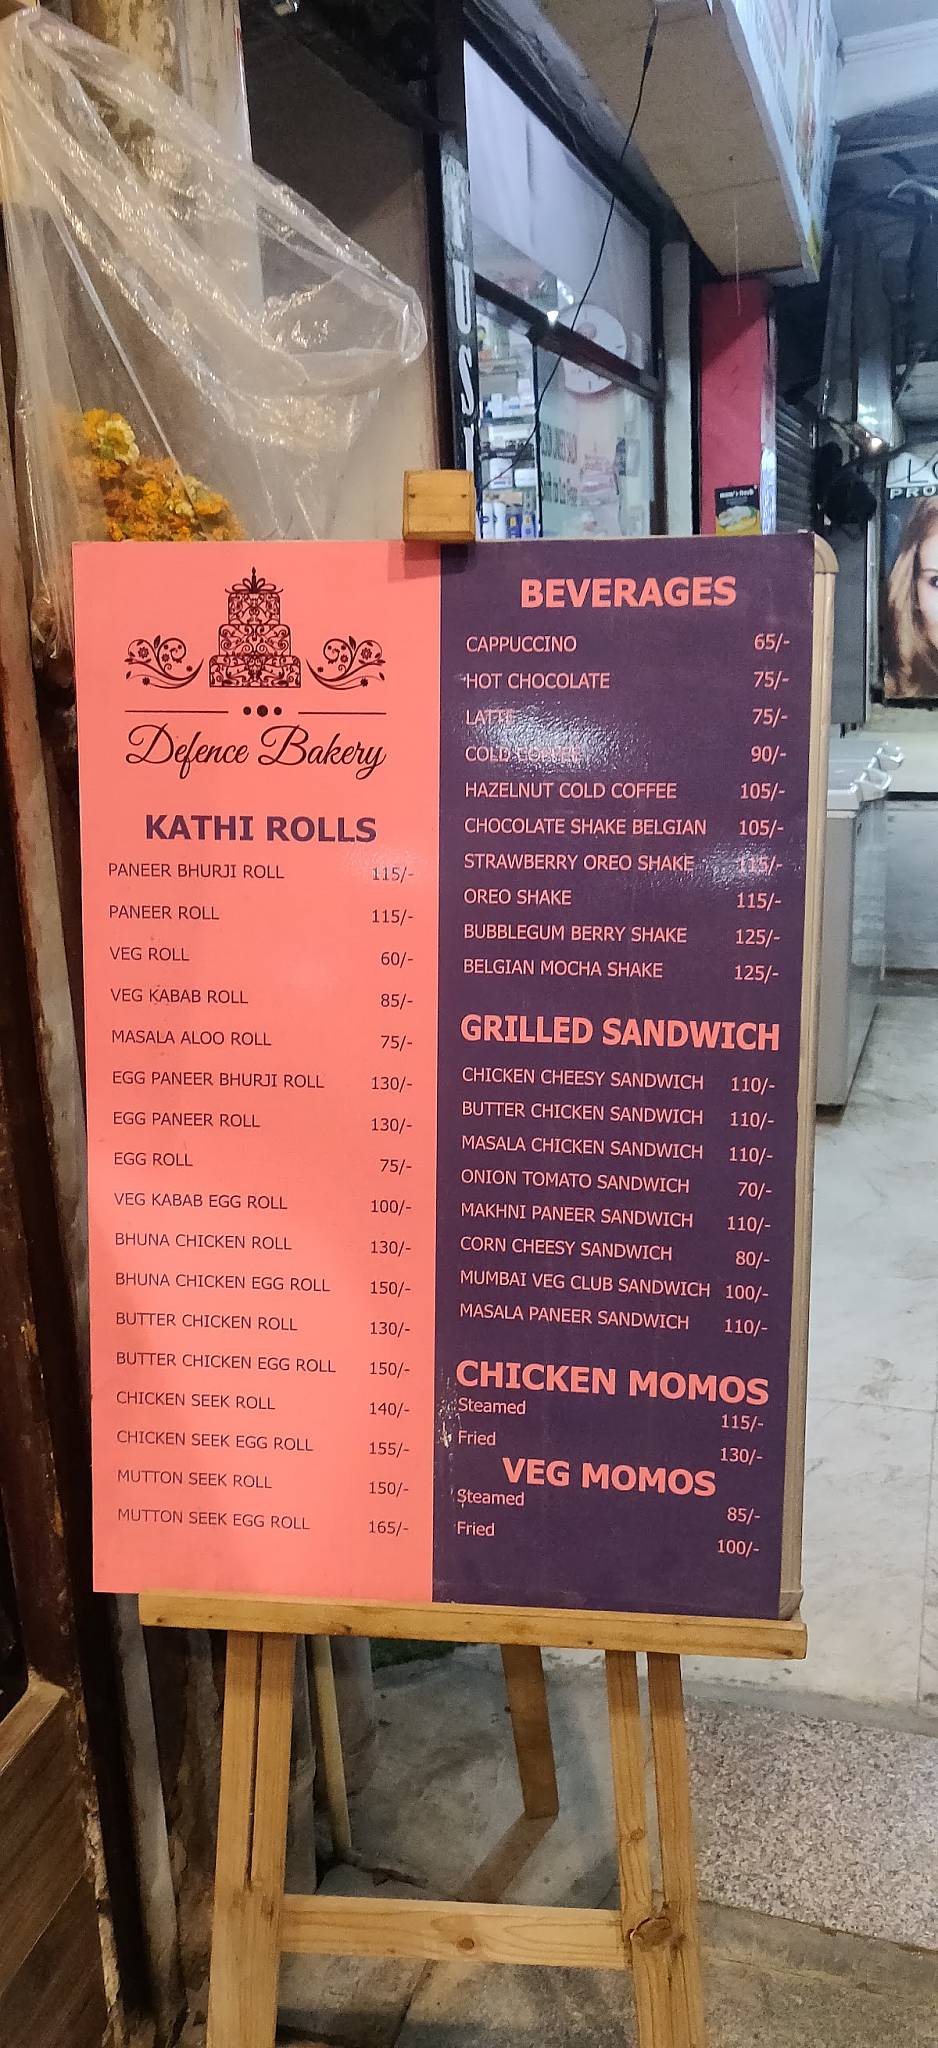 Defence Bakery
KATHI ROLLS
PANEER BHURJI ROLL 115/-
PANEER ROLL 115/-
VEG ROLL 60/-
VEG KABAB ROLL 85/-
MASALA ALOO ROLL 75/-
EGG PANEER BHURJI ROLL 130/-
EGG PANEER ROLL 130/-
EGG ROLL 75/-
VEG KABAB EGG ROLL 100/-
BHUNA CHICKEN ROLL 130/-
BHUNA CHICKEN EGG ROLL 150/-
BUTTER CHICKEN ROLL 130/-
BUTTER CHICKEN EGG ROLL 150/-
CHICKEN SEEK ROLL 140/-
CHICKEN SEEK EGG ROLL 155/-
MUTTON SEEK ROLL 150/-
MUTTON SEEK EGG ROLL 165/-
BEVERAGES
CAPPUCCINO 65/-
HOT CHOCOLATE 75/-
LATTE 75/-
COLD COFFEE 90/-
HAZELNUT COLD COFFEE 105/-
CHOCOLATE SHAKE BELGIAN 105/-
STRAWBERRY OREO SHAKE 115/-
OREO SHAKE 115/-
BUBBLEGUM BERRY SHAKE 125/-
BELGIAN MOCHA SHAKE 125/-
GRILLED SANDWICH
CHICKEN CHEESY SANDWICH 110/-
BUTTER CHICKEN SANDWICH 110/-
MASALA CHICKEN SANDWICH 110/-
ONION TOMATO SANDWICH 70/-
MAKHNI PANEER SANDWICH 110/-
CORN CHEESY SANDWICH 80/-
MUMBAI VEG CLUB SANDWICH 100/-
MASALA PANEER SANDWICH 110/-
CHICKEN MOMOS
Steamed 115/-
Fried 130/-
VEG MOMOS
Steamed 85/-
Fried 100/-
PRO